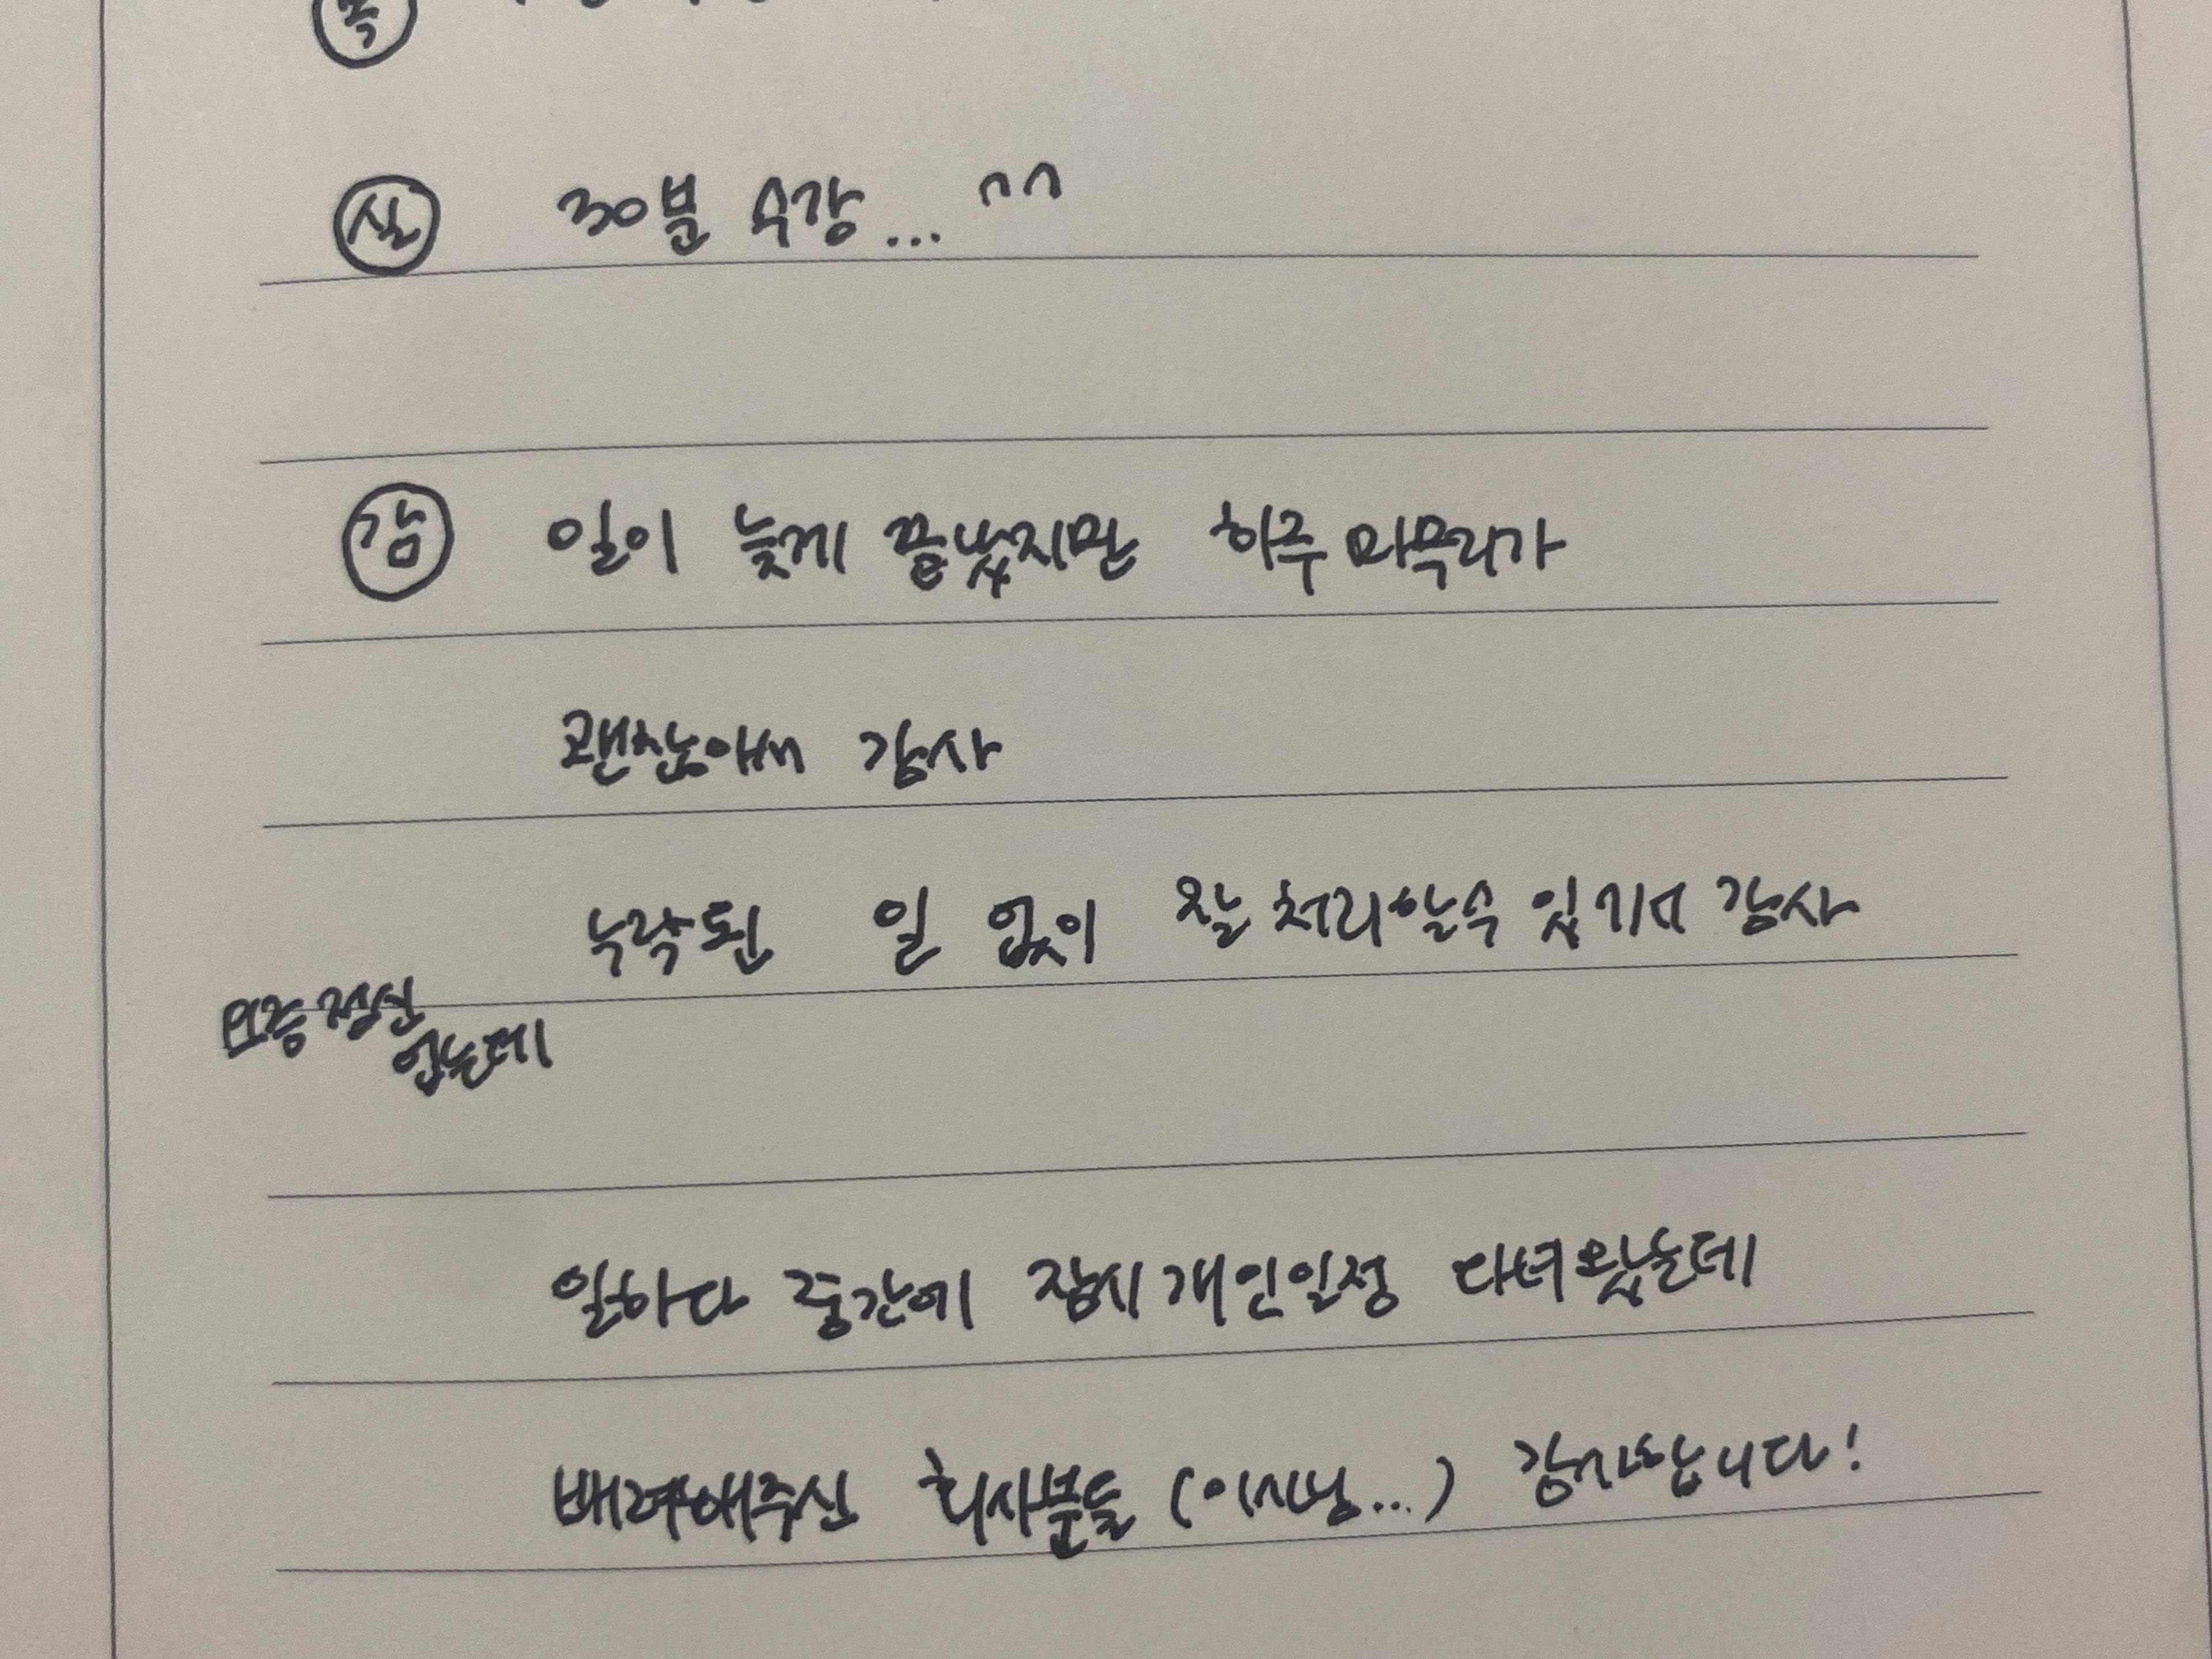 목
실 30분 수강... ^^
감 일이 늦게 끝났지만 하루 마무리가
괜찮아서 감사
누락된 일 없이 잘 처리할수 있기에 감사
요즘 정신
없는데
일하다 중간에 잠시 개인일정 다녀왔는데
배려해주신 회사분들 ( ...) 감사합니다!